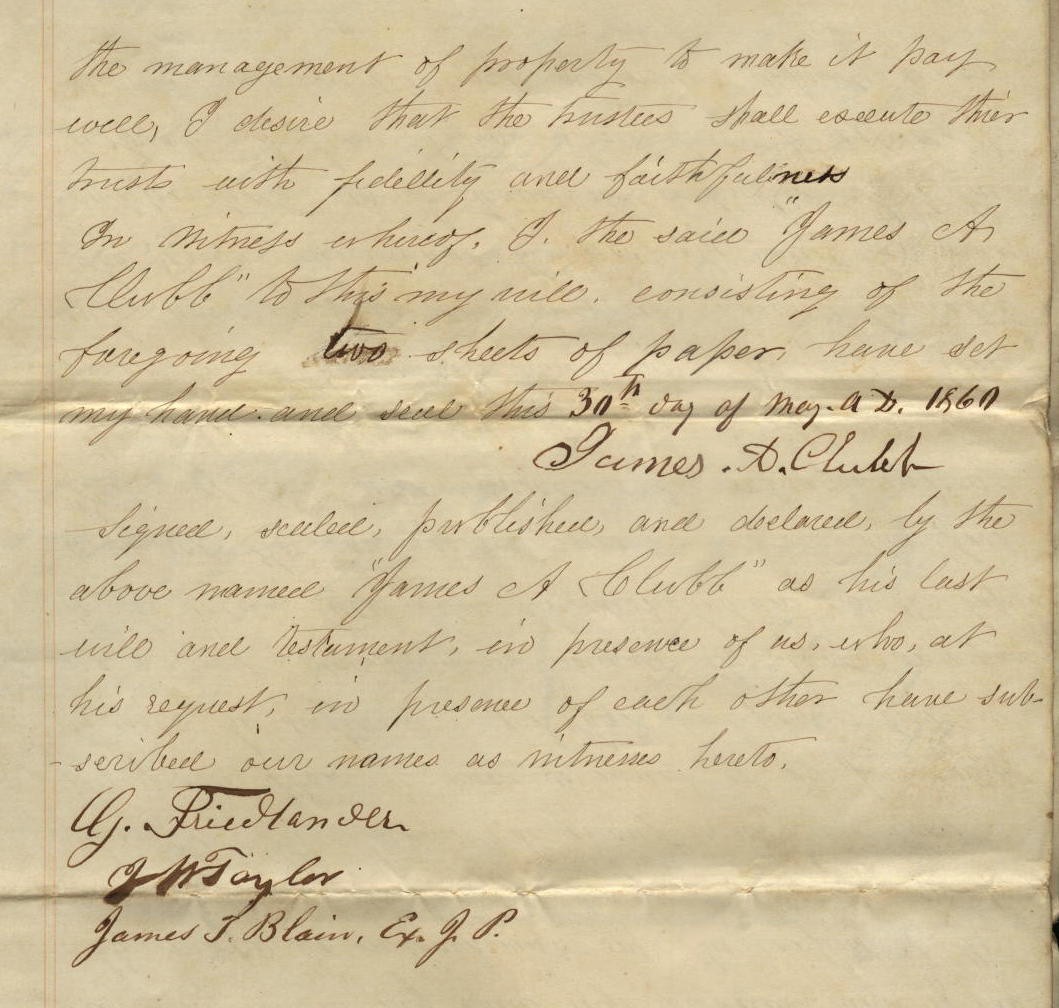 the management of property to make it pay
well, I desire that the trustees shall execute thier
trusts with fidellity and faithfulness
In Witness whereof, I, the said "James A
Clubb" to this my will, consisting of the
foregoing two sheets of paper, have set
my hand and seal this 30th day of May. A D. 1860
James. A. Clubb
Signed, sealed, published, and declared, by the
above named "James A Clubb" as his last
will and testament, in presence of us, who, at
his request, in presence of each other have sub-
-scribed our names as witnesses hereto.
G. Friedlander
J W Taylor
James T. Blain, Ex. J. P.